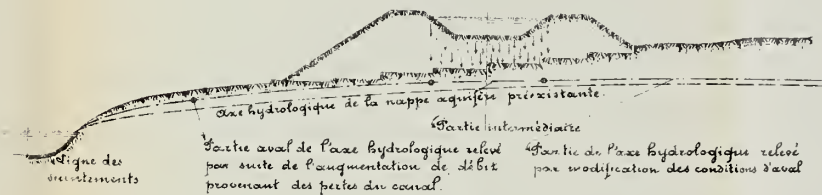 Axe hydrologique de la nappe aquifère préexistante.
Ligne des
suintements
Partie aval de l'axe hydrologique relevé
par suite de l'augmentation de débit
provenant des pertes du canal.
Partie intermédiaire
Partie de l'axe hydrologique relevé
par modification des conditions d'aval